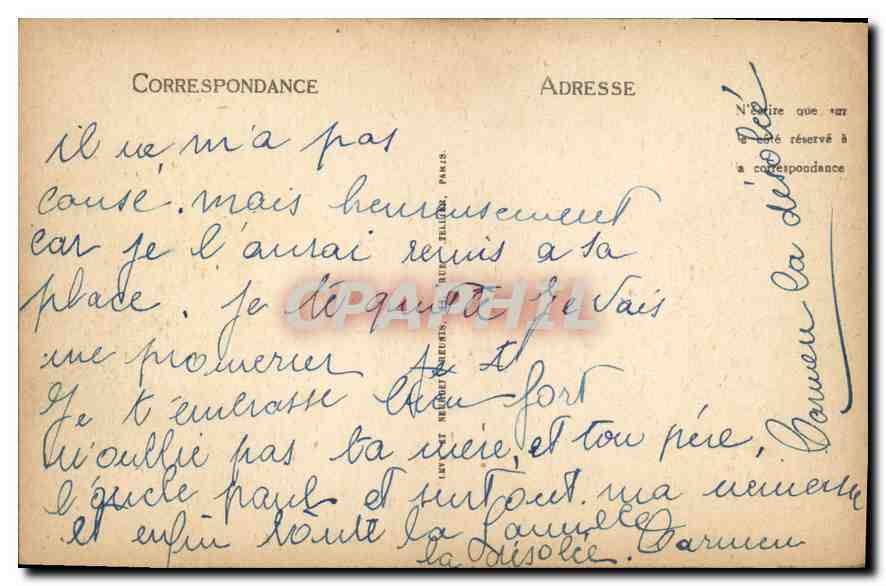 CORRESPONDANCE
ADRESSE
N'écrire que sur
le côté réservé à
la correspondance
il ne m'a pas
causé. mais heureusement
car je l'aurai remis a sa
place. Je te quitte je vais
me promener
Je t'embrasse bien fort
n'oublie pas ta mère, et ton père,
l'oncle paul et surtout ma
et enfin toute la famille
la désolée. Carmen
Carmen la désolée
LEVY ET NEURDEIN REUNIS, RUE LETELLIER, PARIS.
CPAPHIL